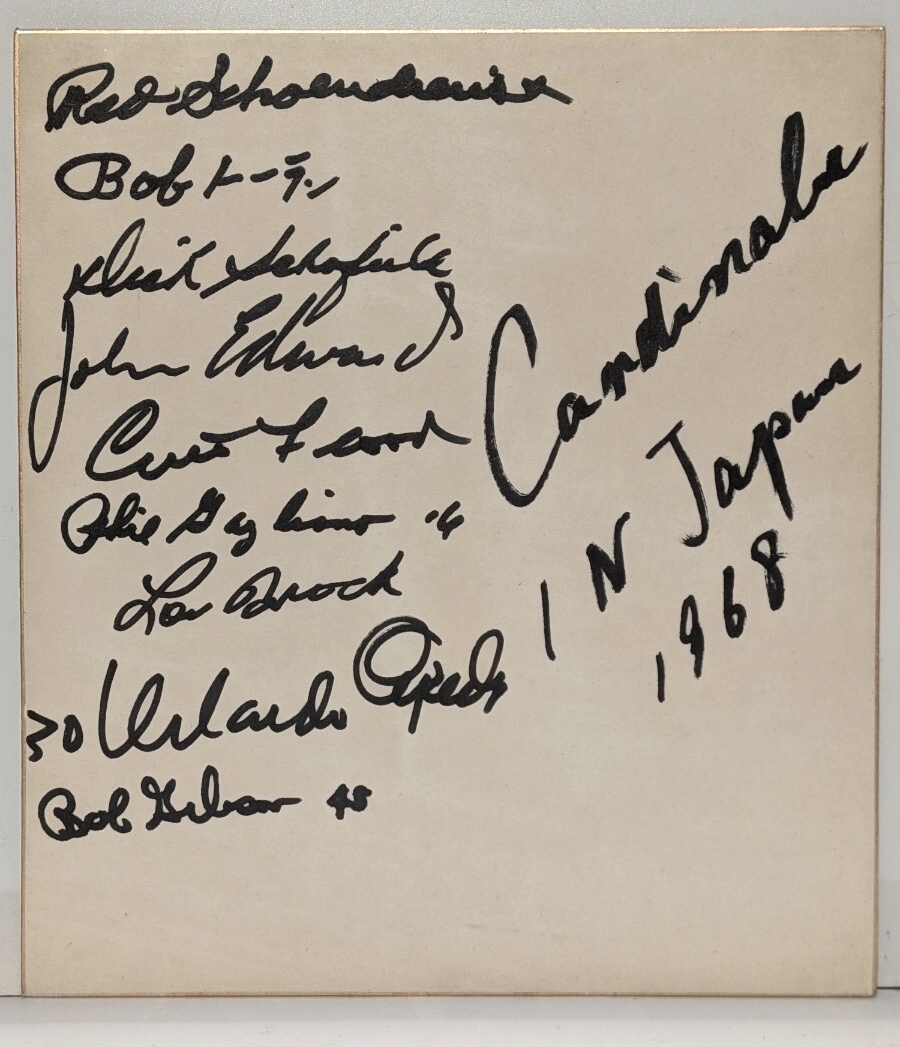 Red Schoendienst
Bob
Dick Schofield
John Edwards
Curt Flood
Phil Gagliano 16
Lou Brock
30 Orlando Cepeda
Bob Gibson 45
Cardinals
IN Japan
1968